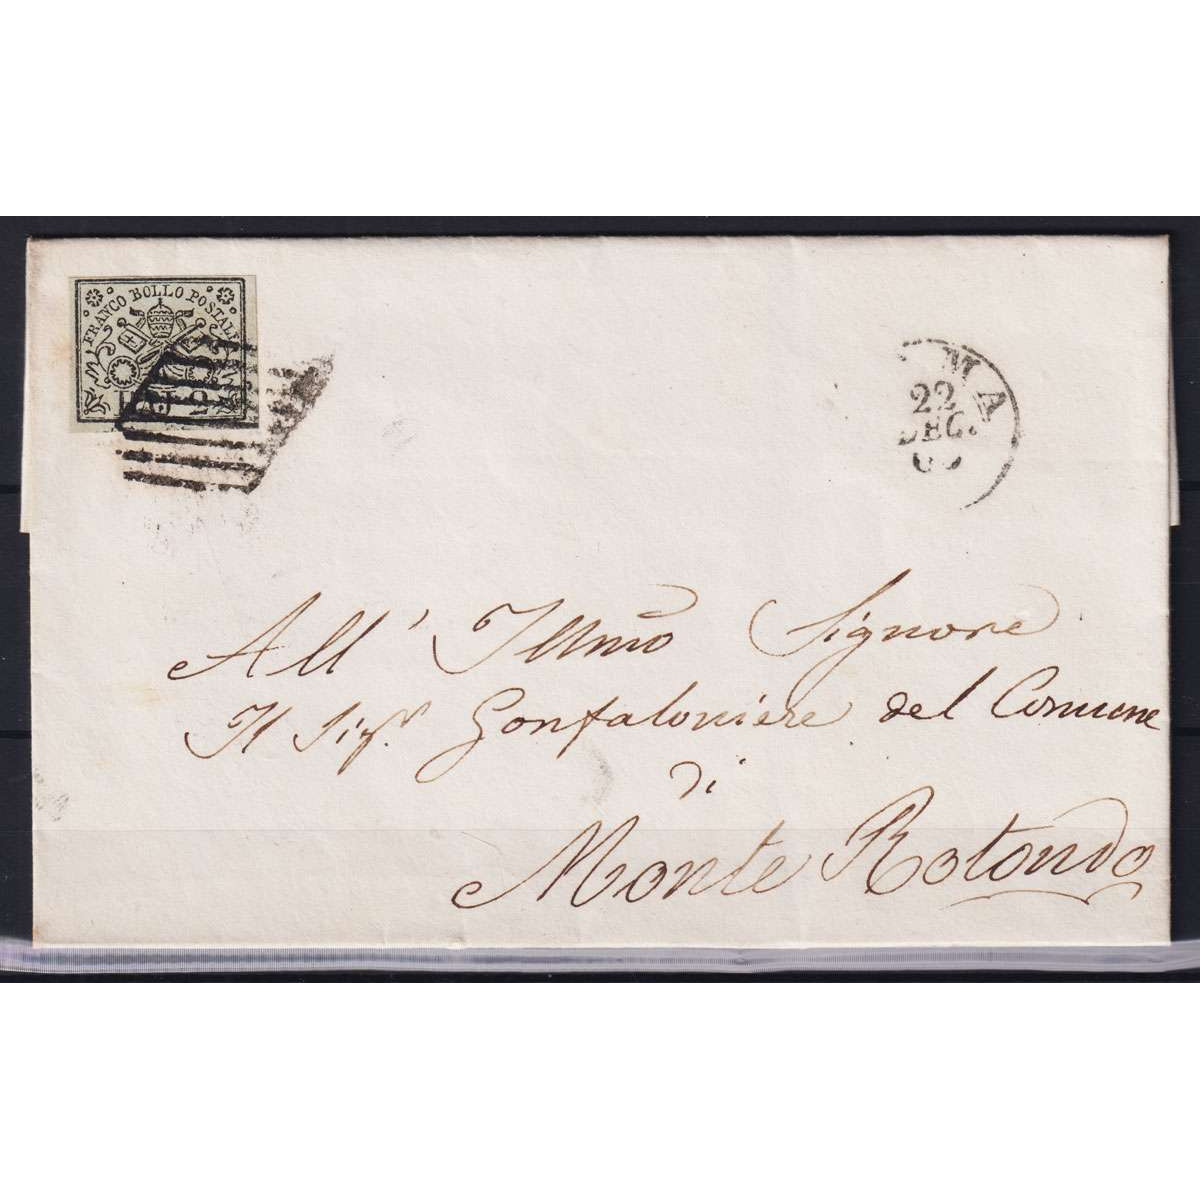 FRANCO BOLLO POSTALE
BAJ 2
MA
22
DEC.
All' Illmo Signore
Il Sigr. Gonfaloniere del Comune
di
Monte Rotondo